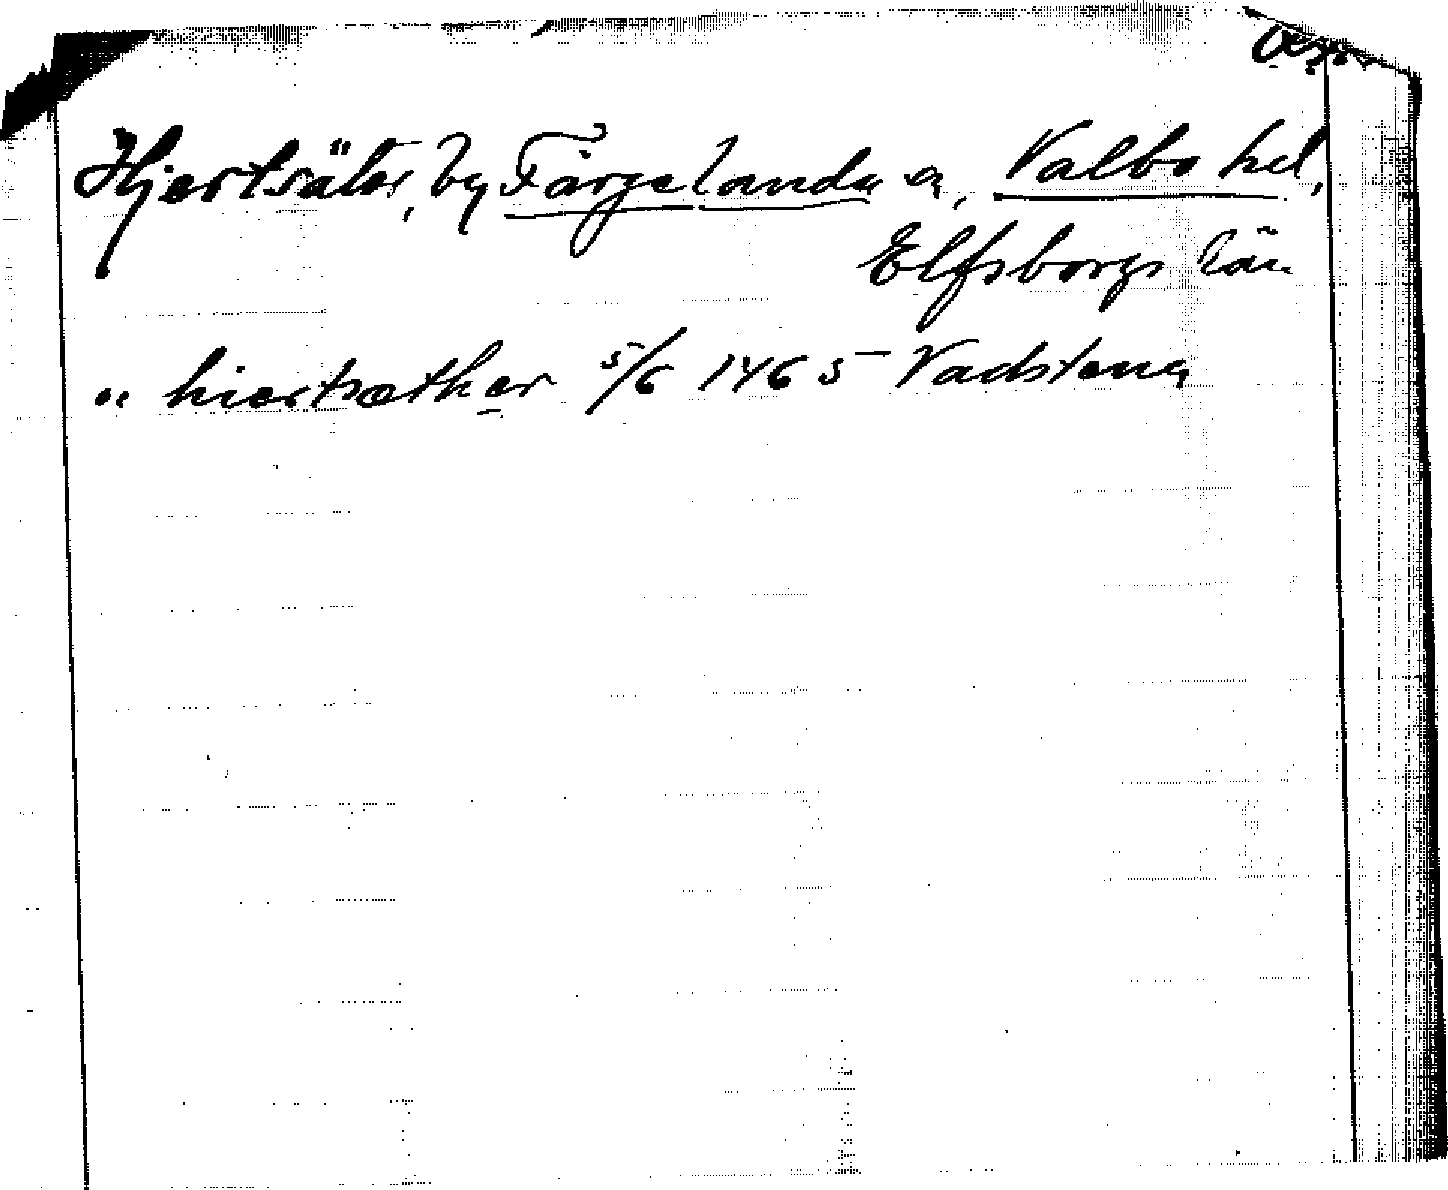 Hjertsäter, by Färgelanda sn, Valbo hd,
Elfsborgs län
" hiertsæther 5/6 1465 Vadstena